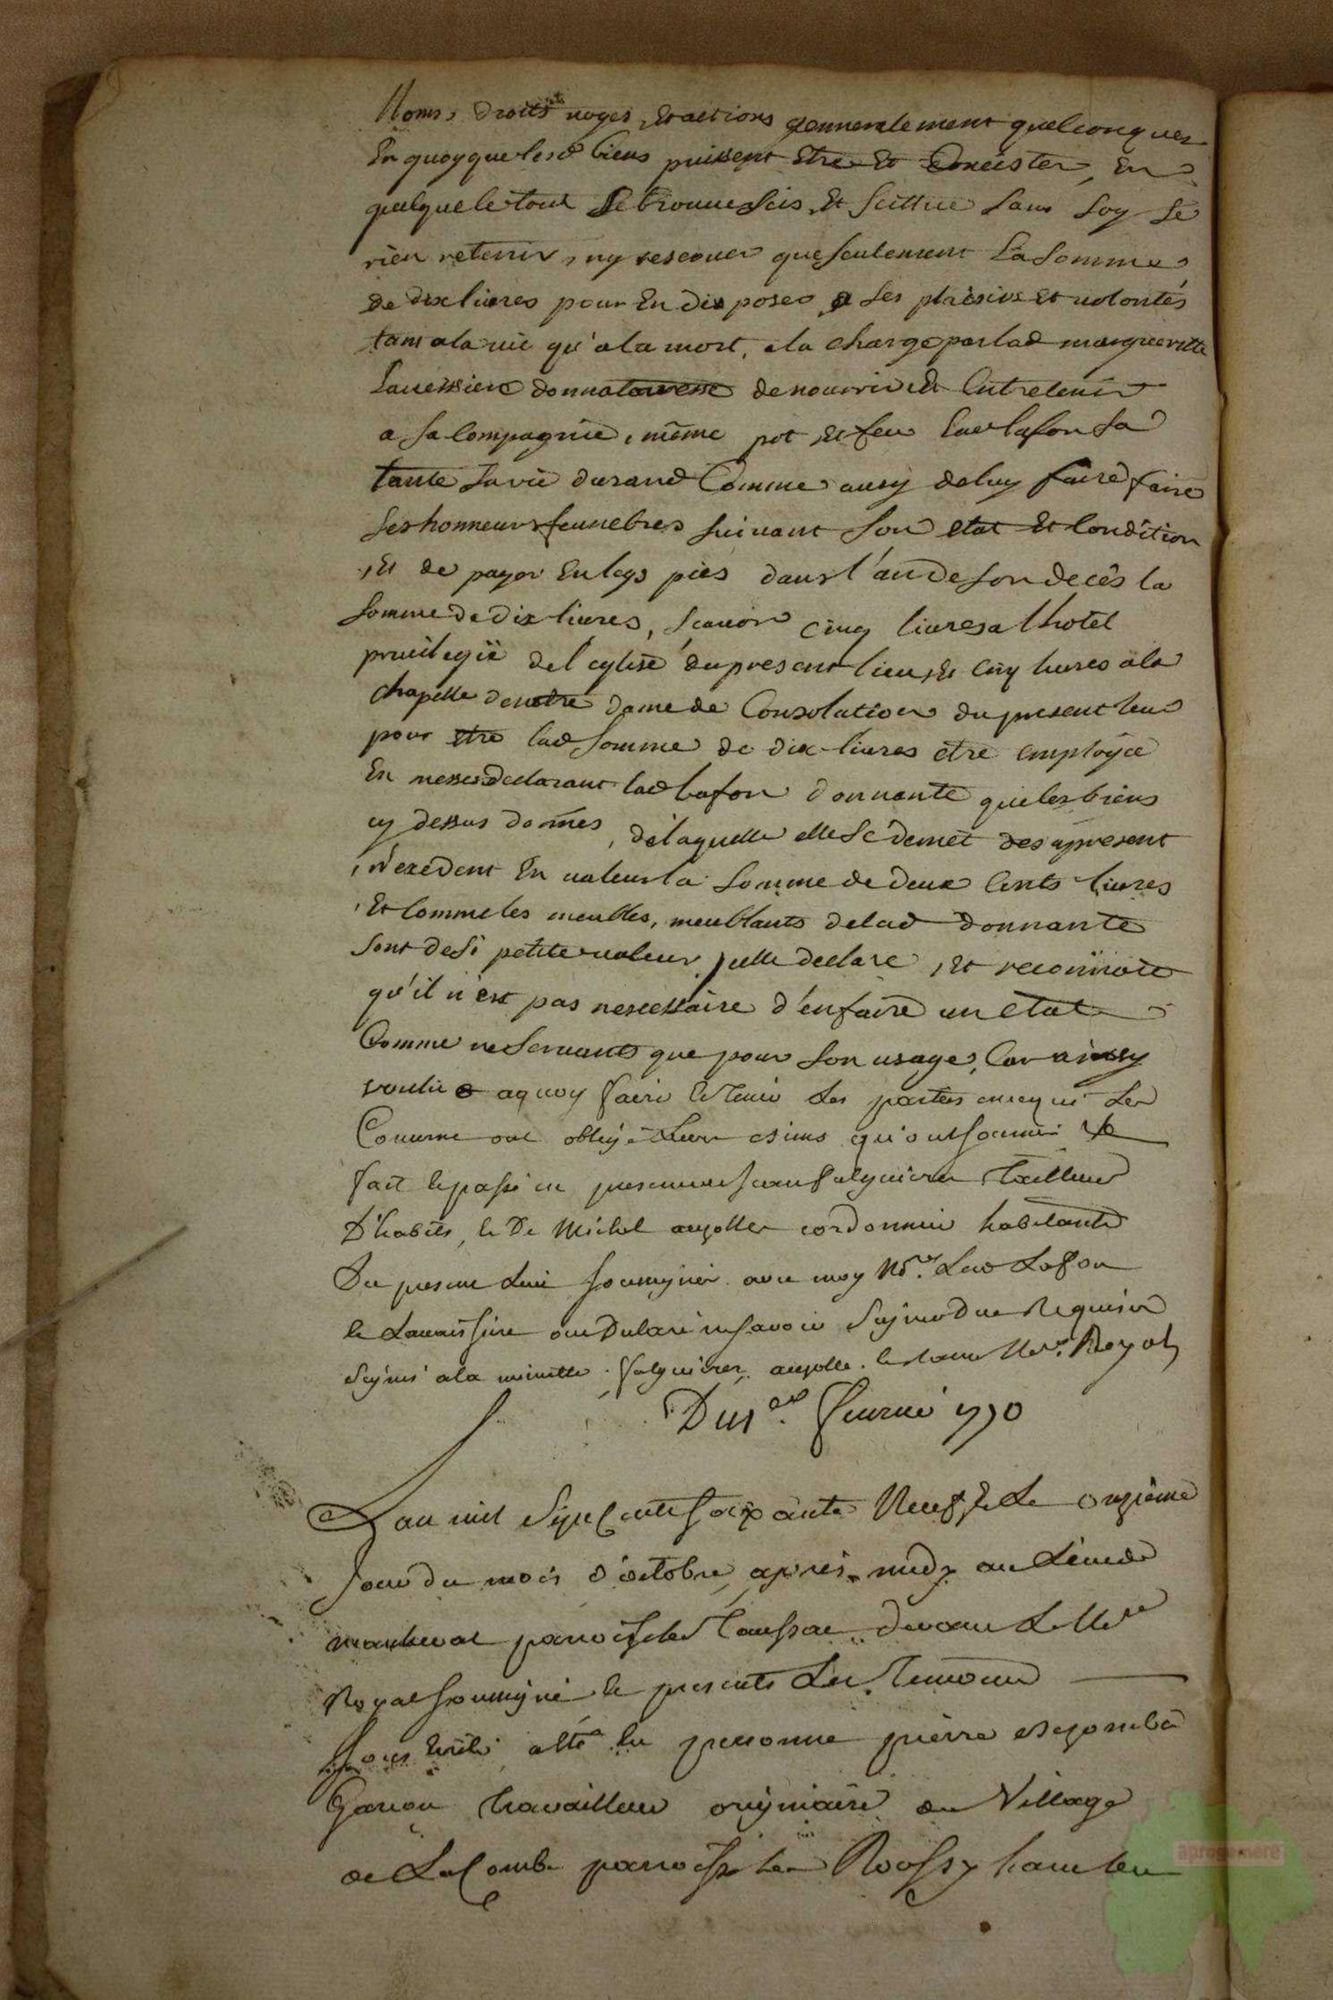 Noms, droits voyes, et actions gennerallement quelconques
En quoyque lesd biens puissent etre et Concister, En
quelque le tout se trouue scis et scittué sans soy se
rien retenir, ny reseruer que seulement la somme
de dix liures pour En disposer a ses plaisirs et volontés
tant a la vie qu'a la mort, a la charge par lad margueritte
Lauessiere donnataresse de nourrir et Entretenir
a sa Compagnie, même pot et feu Lad lafon sa
tante sa vie durand Comme ausy de luy faire faire
ses honneurs funebres suivant son etat et Condition
, et de payer En legs pies dans l'an de son decès la
somme de dix liures, scauoir cinq liures a lhotel
privilegié de l'eglise du present lieu, et cinq liures a la
chapelle de notre dame de Consolation du present lieu
pour etre lad somme de dix liures etre employée
En messes declarant lad lafon donnante que les biens
cy dessus donnés, de laquelle elle se demet des apresent
, n'exedent En valeur la somme de deux Cents liures
, Et Comme les meubles, meublants de lad donnante
sont de si petite valeur, elle declare, et reconnoit
qu'il n'est pas nescessaire d'en faire un etat
Comme ne seruants que pour son usage, Car ainsy
voulu a quoy faire et tenir les parties
ont obligé leurs biens qu'ont soumis
fait et passé en presence de Jean falguieres tailleur
D'habits, et De Michel aujolles cordonnier habitants
Du present lieu soussignés avec moy Nore. Lad Lafon
et Lauaissiere ont Declaré ne savoir signer De Requises
signés a la minutte. falguieres, aujolles. Nore. Royal
Du 1er. feurier 1770
L'an mil sept cents soixante Neuf et Le onzieme
Jour du mois d'octobre, après midy au Lieu de
murdeual parroisse de Taussac deuant Le Nre
Royal soussigné et presents Les Temoins
sous ecrits a été En personne pierre
Garcon travailleur originaire du Village
de LaCombe parroisse de Roussy hauteu
aprogemere